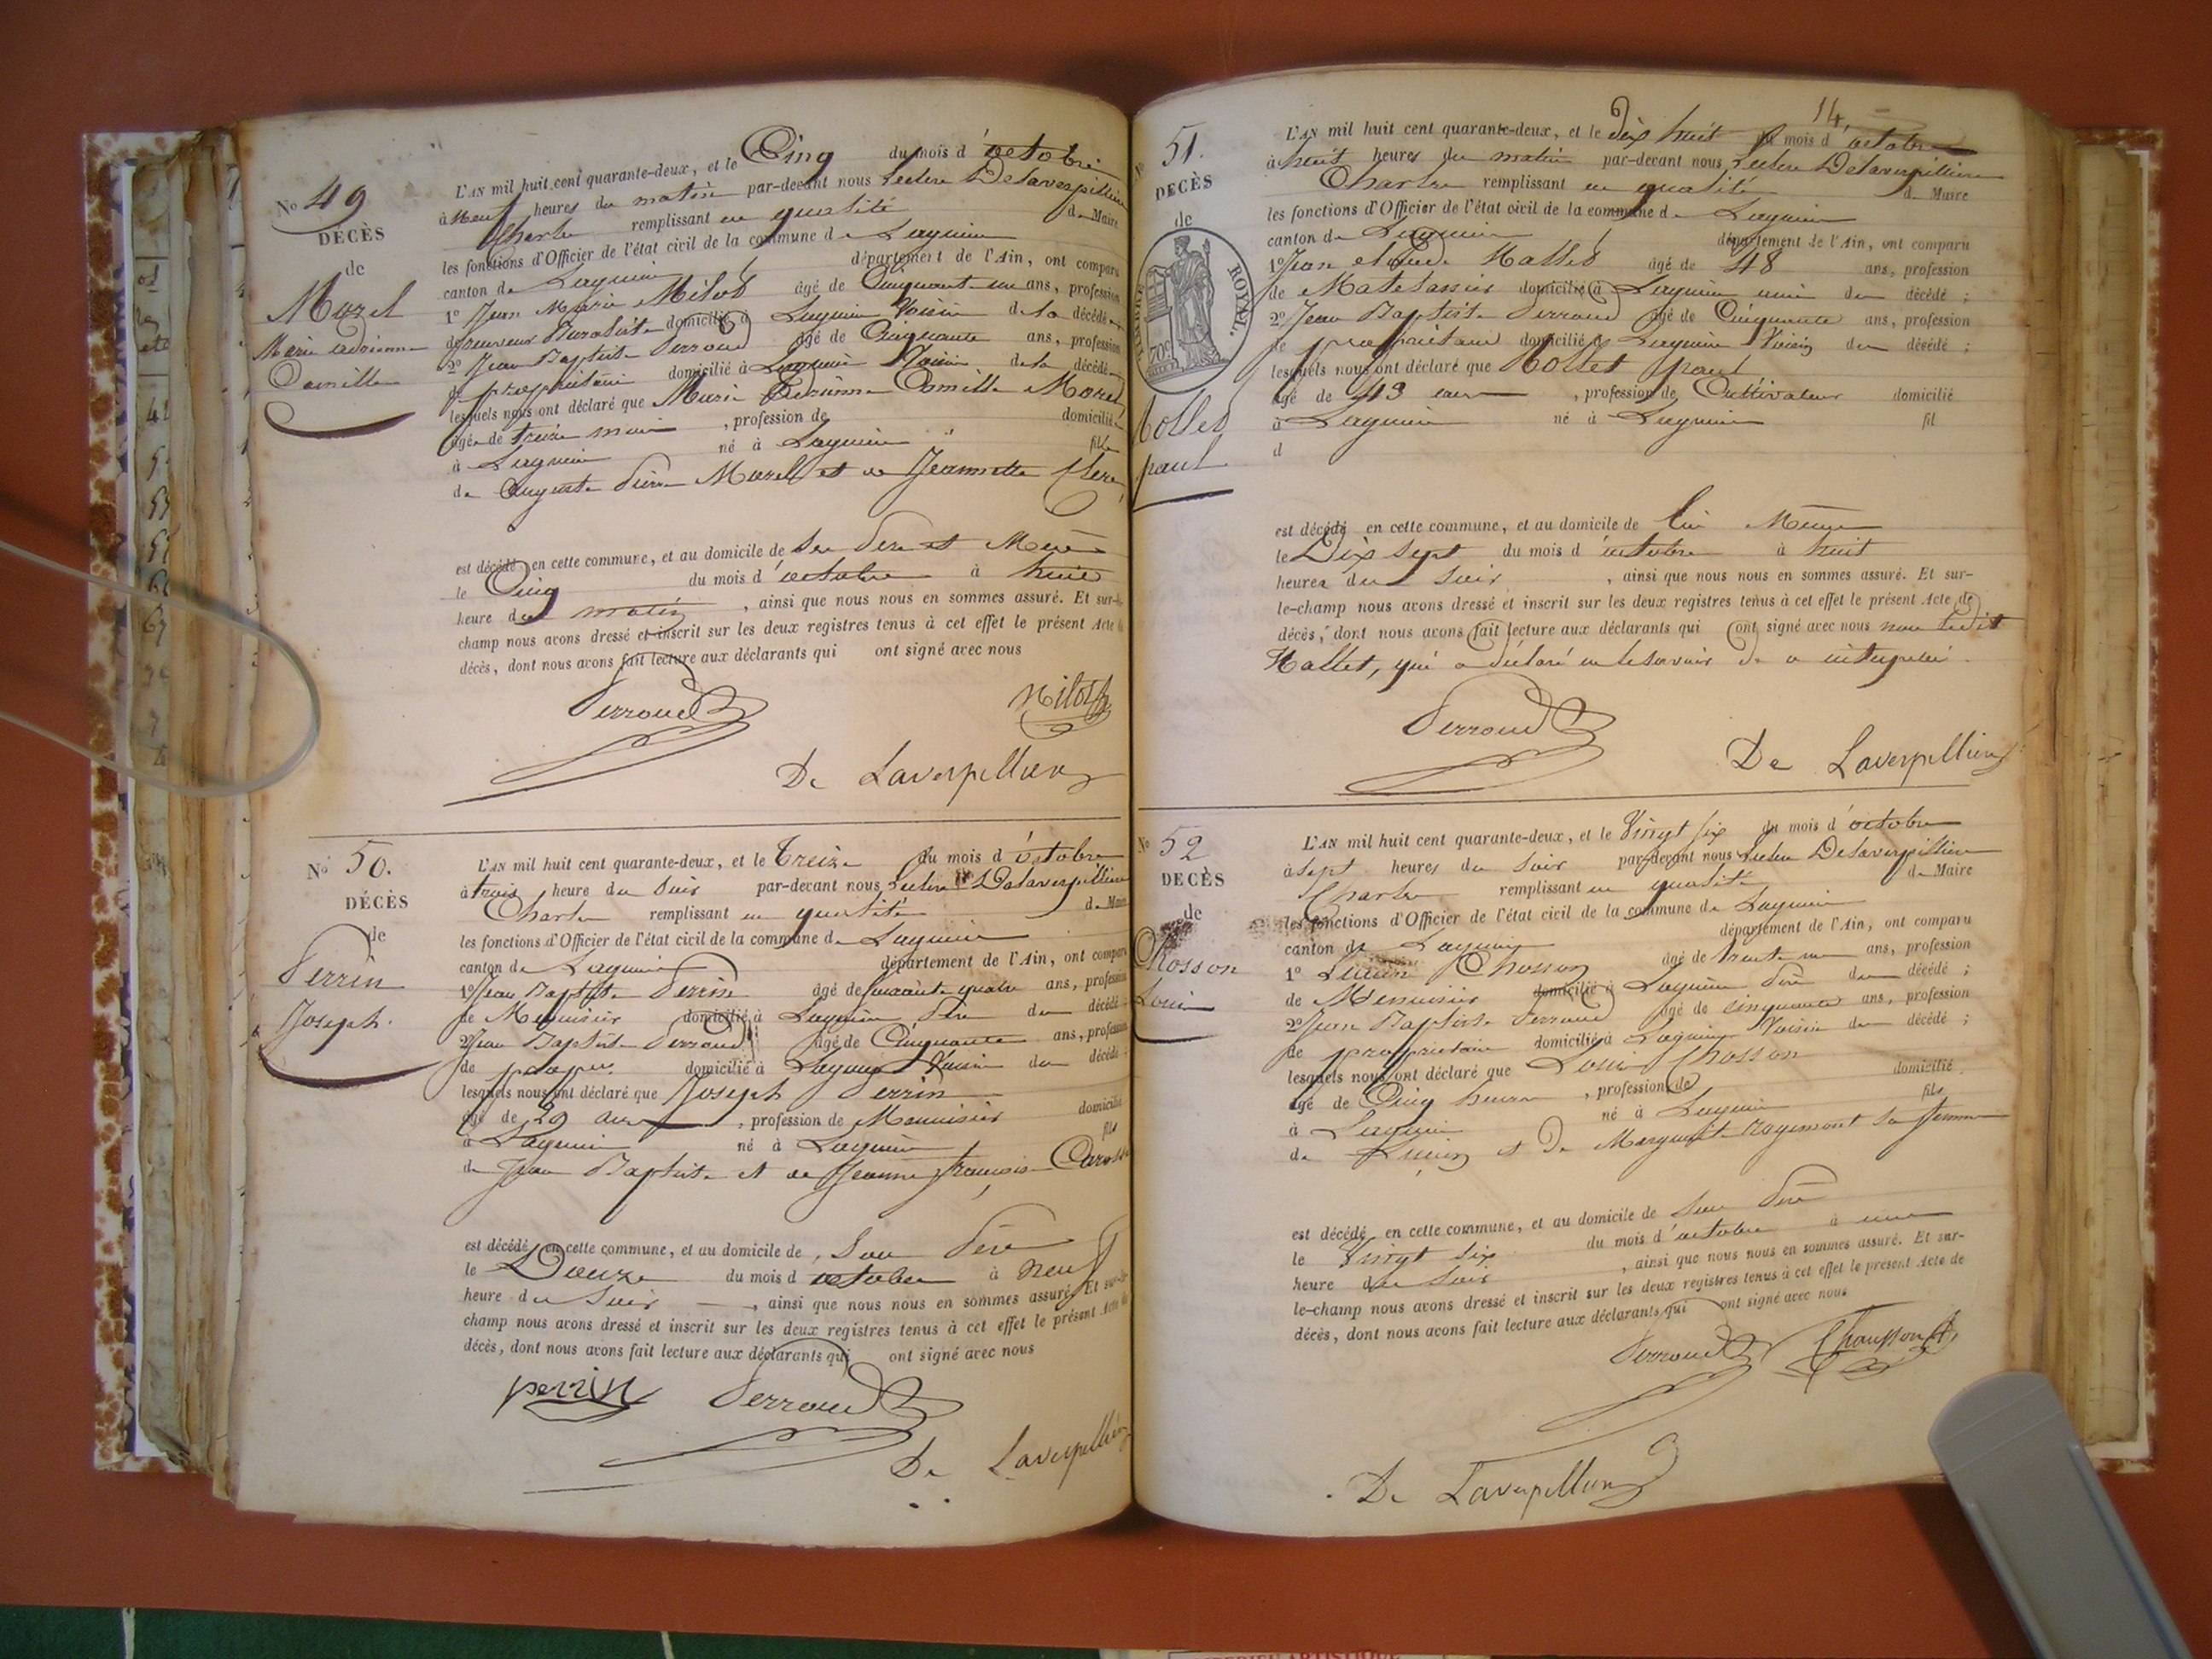 No 49
DÉCÈS
de
Morel
Marie Adrienne
Camille
L'AN mil huit cent quarante-deux, et le Cinq du mois d'octobre
à Neuf heures du matin par-devant nous Leclerc Delaverpillière
Charles remplissant en qualité de Maire
les fonctions d'Officier de l'état civil de la commune de Lagnieu
canton de Lagnieu département de l'Ain, ont comparu
1º Jean Marie Milot âgé de Cinquante un ans, profession
domicilié à Lagnieu Voisin de la décédée
2º Jean Baptiste Perroud âgé de Cinquante ans, profession
de propriétaire domicilié à Lagnieu Voisin de la décédée
lesquels nous ont déclaré que Marie Adrienne Camille Morel
âgée de treize mois , profession de domiciliée
à Lagnieu né à Lagnieu fille
de Auguste Pierre Morel et de Jeannette
est décédé en cette commune, et au domicile de Ses Père et Mère
le Cinq du mois d'octobre à huit
heure du matin , ainsi que nous nous en sommes assuré. Et sur-le-
champ nous avons dressé et inscrit sur les deux registres tenus à cet effet le présent Acte de
décès, dont nous avons fait lecture aux déclarants qui ont signé avec nous
Perroud Milot
De Laverpillière
No 50.
DÉCÈS
de
Perrin
Joseph.
L'AN mil huit cent quarante-deux, et le Treize du mois d'octobre
à trois heure du Soir par-devant nous Leclerc Delaverpillière
Charles remplissant en qualité de Maire
les fonctions d'Officier de l'état civil de la commune de Lagnieu
canton de Lagnieu département de l'Ain, ont comparu
1º Jean Baptiste Perrin âgé de quatre ans, profession
de Menuisier domicilié à Lagnieu Père du décédé
2º Jean Baptiste Perroud âgé de Cinquante ans, profession
de propre. domicilié à Lagnieu Voisin du décédé
lesquels nous ont déclaré que Joseph Perrin
âgé de 29 ans , profession de Menuisier domicilié
à Lagnieu né à Lagnieu fils
de Jean Baptiste et de Jeanne Françoise
est décédé en cette commune, et au domicile de Son Père
le Douze du mois d'octobre à neuf
heure du Soir , ainsi que nous nous en sommes assuré. Et sur-le-
champ nous avons dressé et inscrit sur les deux registres tenus à cet effet le présent Acte de
décès, dont nous avons fait lecture aux déclarants qui ont signé avec nous
perrin Perroud
De Laverpillière
14
No 51.
DÉCÈS
de
TIMBRE ROYAL.
70c
Mollet
paul
L'AN mil huit cent quarante-deux, et le dix huit du mois d'octobre
à huit heures du matin par-devant nous Leclerc Delaverpillière
Charles remplissant en qualité de Maire
les fonctions d'Officier de l'état civil de la commune de Lagnieu
canton de Lagnieu département de l'Ain, ont comparu
1º Jean Claude Mallet âgé de 48 ans, profession
de Matelassier domicilié à Lagnieu ami du décédé ;
2º Jean Baptiste Perroud âgé de Cinquante ans, profession
de propriétaire domicilié à Lagnieu Voisin du décédé ;
lesquels nous ont déclaré que Mollet paul
âgé de 43 ans , profession de Cultivateur domicilié
à Lagnieu né à Lagnieu fil
d
est décédé en cette commune, et au domicile de lui Même
le Dix Sept du mois d'octobre à huit
heures du Soir , ainsi que nous nous en sommes assuré. Et sur-
le-champ nous avons dressé et inscrit sur les deux registres tenus à cet effet le présent Acte de
décès, dont nous avons fait lecture aux déclarants qui ont signé avec nous non ledit
Mallet, qui a déclaré ne le savoir de ce interpellé.
Perroud
De Laverpillière
No 52
DÉCÈS
de
Chosson
Louis
L'AN mil huit cent quarante-deux, et le Vingt six du mois d'octobre
à sept heures du Soir par-devant nous Leclerc Delaverpillière
Charles remplissant en qualité de Maire
les fonctions d'Officier de l'état civil de la commune de Lagnieu
canton de Lagnieu département de l'Ain, ont comparu
1º Lucien Chosson âgé de trente un ans, profession
de Menuisier domicilié à Lagnieu Père du décédé ;
2º Jean Baptiste Perroud âgé de cinquante ans, profession
de propriétaire domicilié à Lagnieu Voisin du décédé ;
lesquels nous ont déclaré que Louis Chosson
âgé de Cinq heures , profession de domicilié
à Lagnieu né à Lagnieu fils
de Lucien et De Marguerite Rogemont sa femme
est décédé en cette commune, et au domicile de Son Père
le Vingt six du mois d'octobre à une
heure du Soir , ainsi que nous nous en sommes assuré. Et sur-
le-champ nous avons dressé et inscrit sur les deux registres tenus à cet effet le présent Acte de
décès, dont nous avons fait lecture aux déclarants qui ont signé avec nous
Perroud Chausson
De Laverpillière